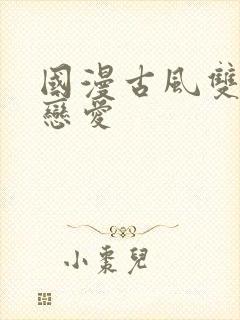 國漫古風雙
戀愛
小棗兒